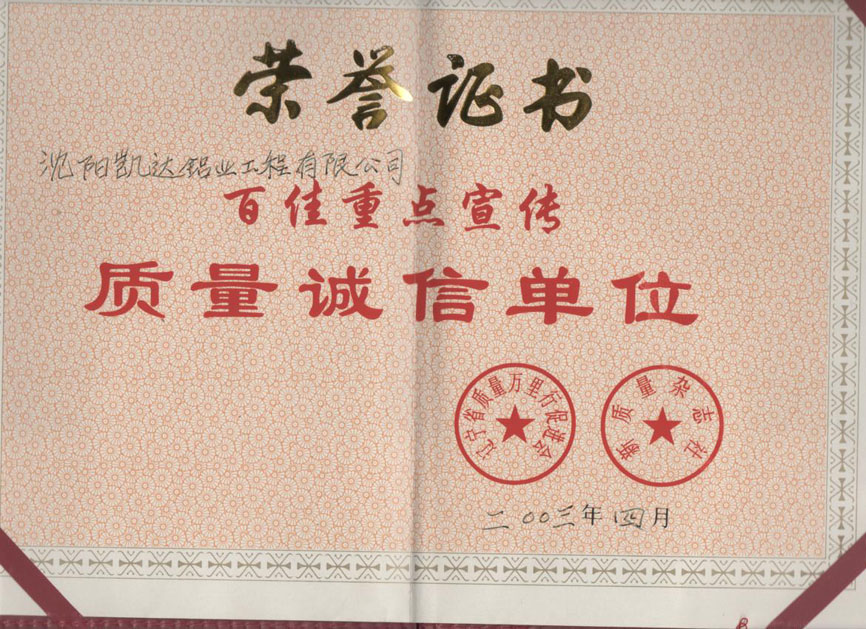 荣誉证书
沈阳凯达铝业工程有限公司
百佳重点宣传
质量诚信单位
辽宁省质量万里行促进会
新质量杂志社
二00三年四月